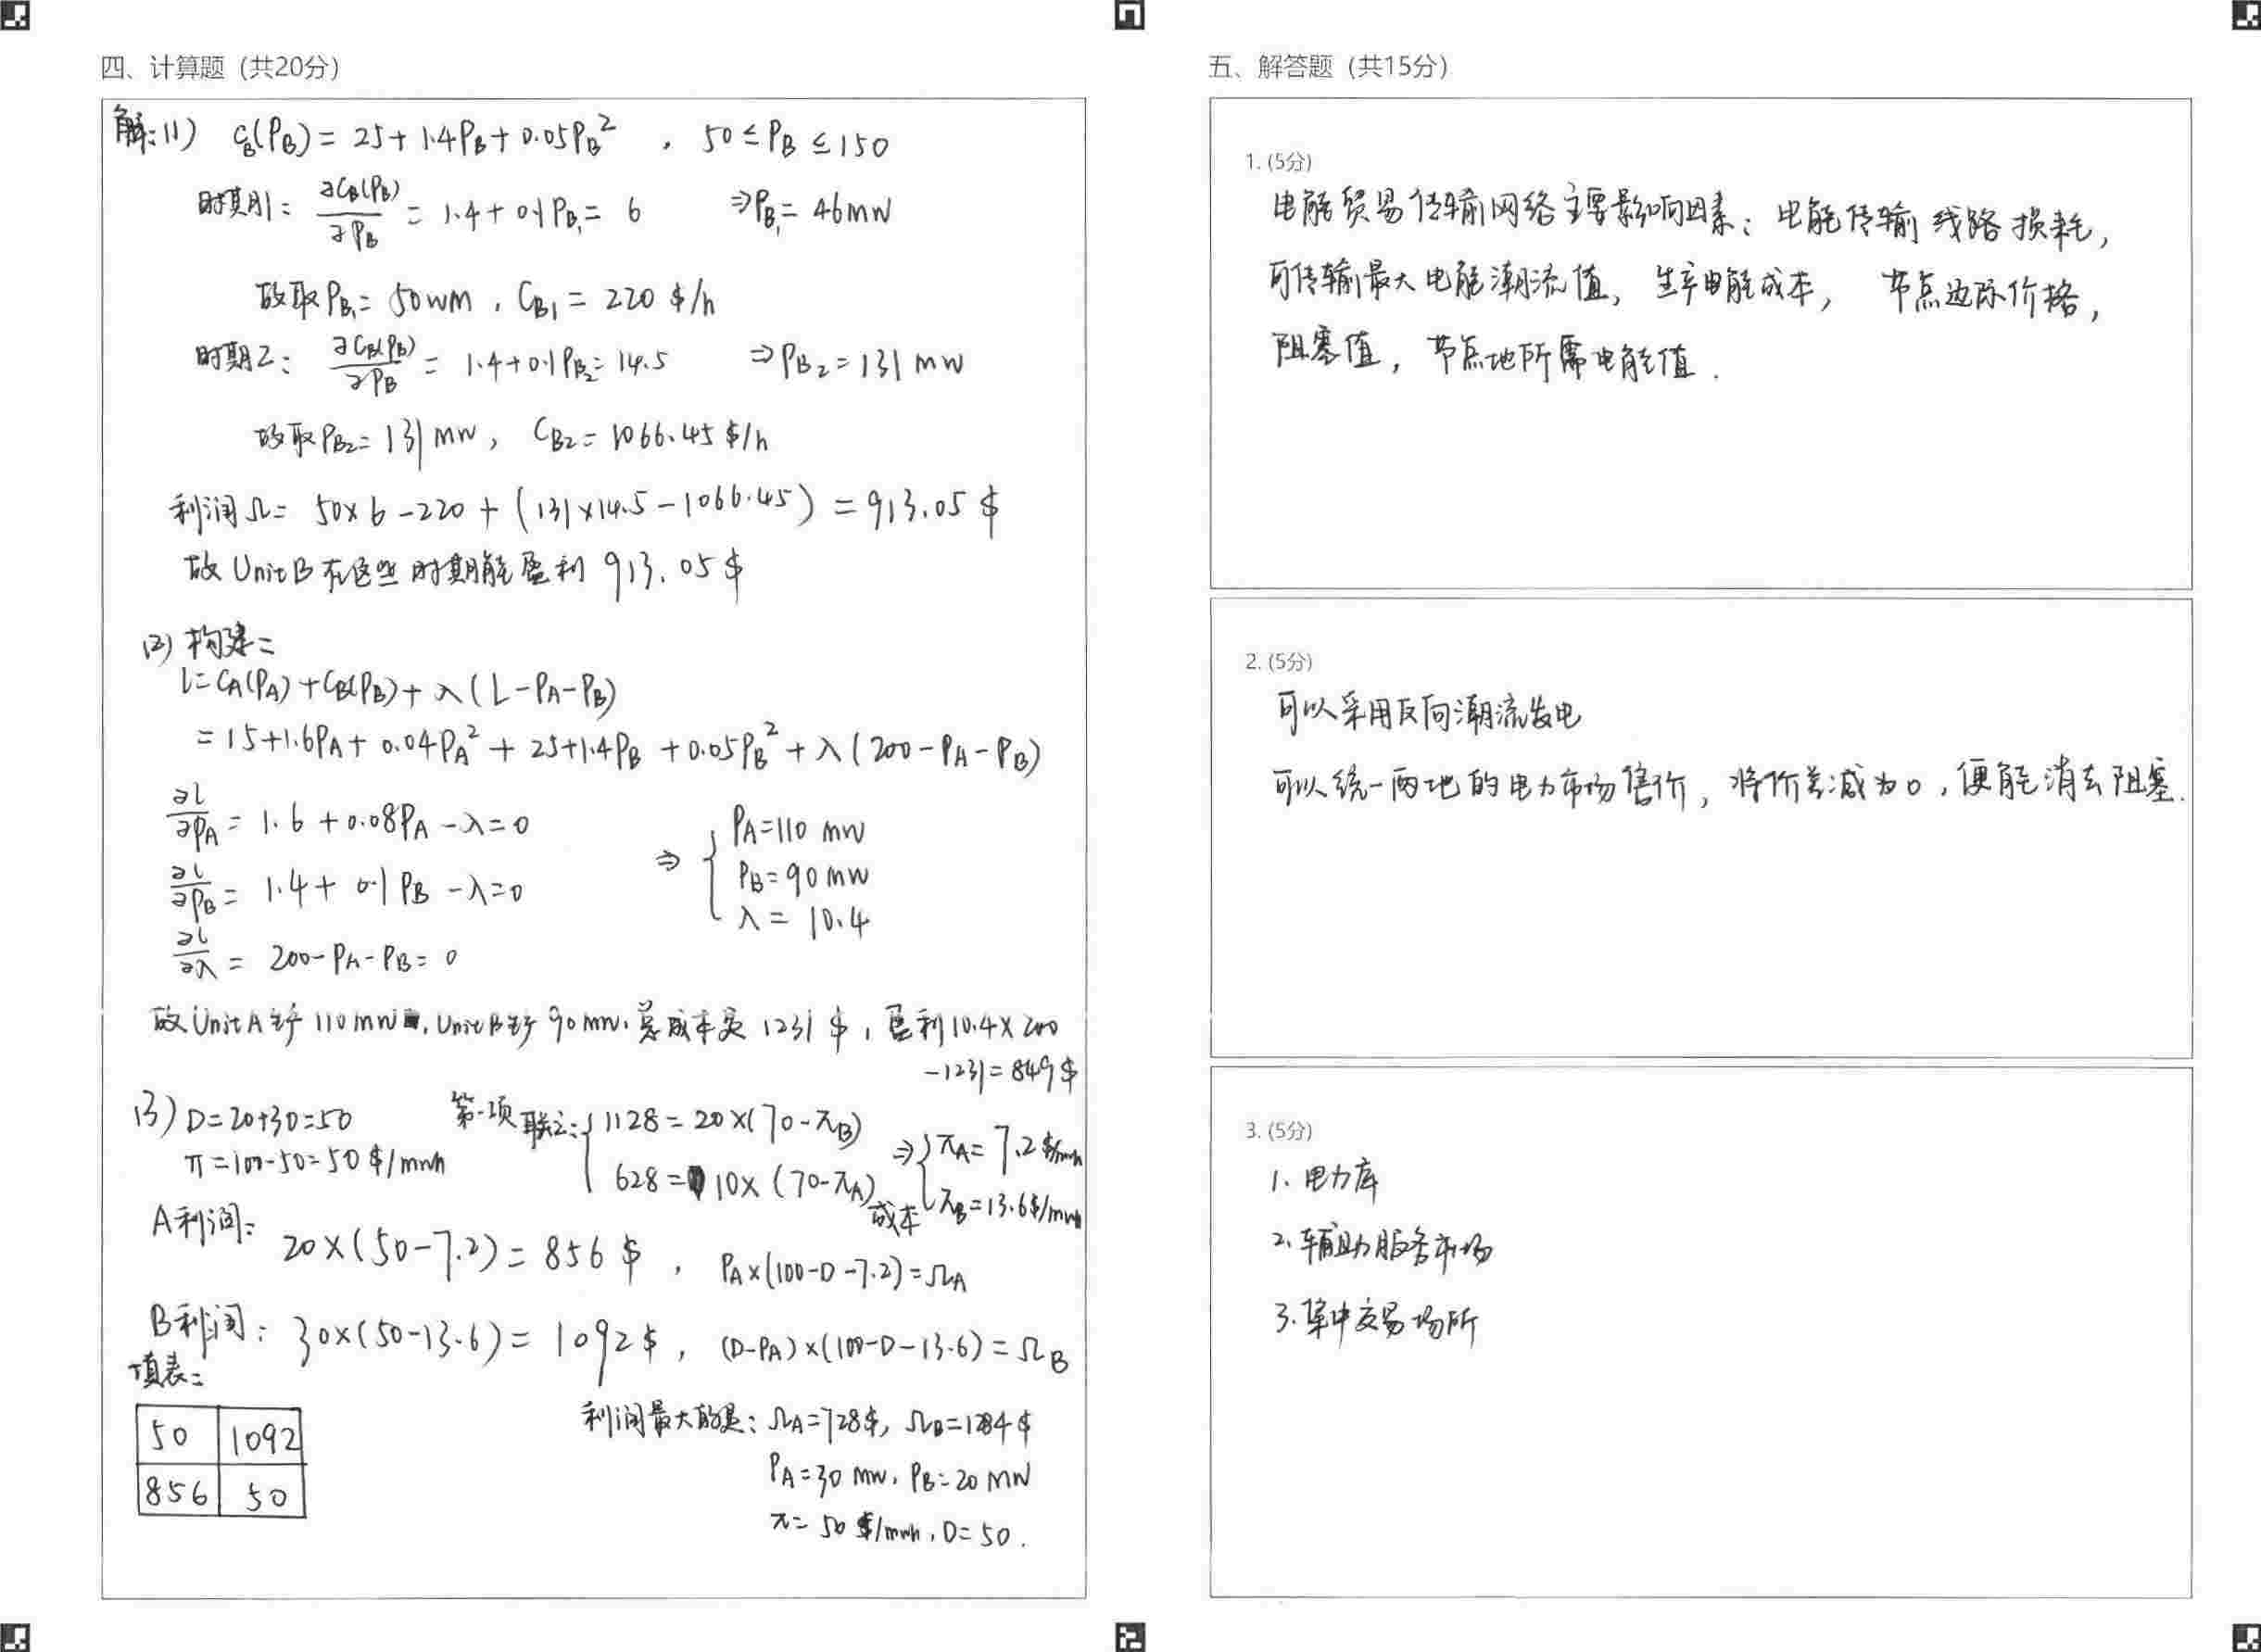 四、计算题（共20分）
解:(1) C_B(P_B) = 25 + 1.4P_B + 0.05P_B² , 50 ≤ P_B ≤ 150
时期1: ∂C_B(P_B)/∂P_B = 1.4 + 0.1P_B₁ = 6 ⇒ P_B₁ = 46mW
故取P_B₁ = 50wm , C_B1 = 220 $/h
时期2: ∂C_B(P_B)/∂P_B = 1.4 + 0.1P_B₂ = 14.5 ⇒ P_B2 = 131 mW
故取P_B2 = 131 mW, C_B2 = 1066.45 $/h
利润Ω = 50×6 - 220 + (131×14.5 - 1066.45) = 913.05 $
故 Unit B 在这些时期能盈利 913.05 $
(2) 构建:
l = C_A(P_A) + C_B(P_B) + λ(L - P_A - P_B)
= 15 + 1.6P_A + 0.04P_A² + 25 + 1.4P_B + 0.05P_B² + λ(200 - P_A - P_B)
∂l/∂P_A = 1.6 + 0.08P_A - λ = 0
∂l/∂P_B = 1.4 + 0.1P_B - λ = 0
∂l/∂λ = 200 - P_A - P_B = 0
⇒ { P_A = 110 mW
P_B = 90 mW
λ = 10.4
故 Unit A 生产 110mW, Unit B 生产 90mW, 总成本是 1231 $, 盈利 10.4×200
-1231 = 849 $
(3) D = 20+30 = 50
π = 100-50 = 50 $/mwh
第一项 联立: { 1128 = 20×(70-π_B)
628 = 10×(70-π_A)
⇒ { π_A = 7.2 $/mwh
成本 π_B = 13.6$/mwh
A利润: 20×(50-7.2) = 856 $ , P_A×(100-D-7.2) = Ω_A
B利润: 30×(50-13.6) = 1092 $ , (D-P_A)×(100-D-13.6) = Ω_B
填表:
50 1092
856 50
利润最大的是: Ω_A = 728$, Ω_B = 1284 $
P_A = 30 mw, P_B = 20 MW
π = 50 $/mwh, D = 50.
五、解答题（共15分）
1. (5分)
电能贸易传输网络主要影响因素: 电能传输线路损耗,
可传输最大电能潮流值, 生产电能成本, 节点边际价格,
阻塞值, 节点地所需电能值.
2. (5分)
可以采用反向潮流发电
可以统一两地的电力市场售价, 将价差减为0, 便能消去阻塞.
3. (5分)
1. 电力库
2. 辅助服务市场
3. 集中交易场所